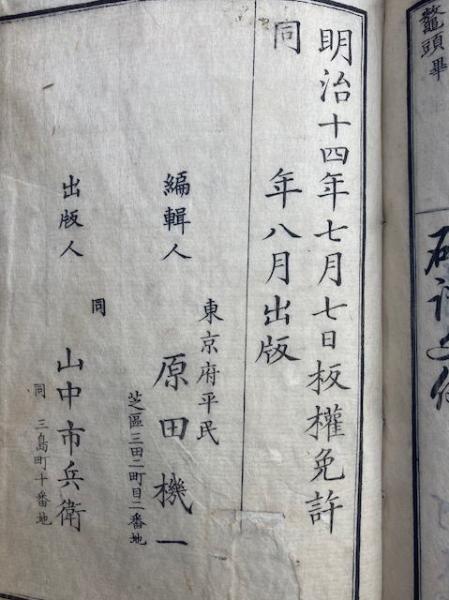 鼇頭畢
明治十四年七月七日板權免許
同年八月出版
編輯人
東京府平民
原田機一
芝區三田二町目二番地
出版人
同
山中市兵衛
同三島町十番地